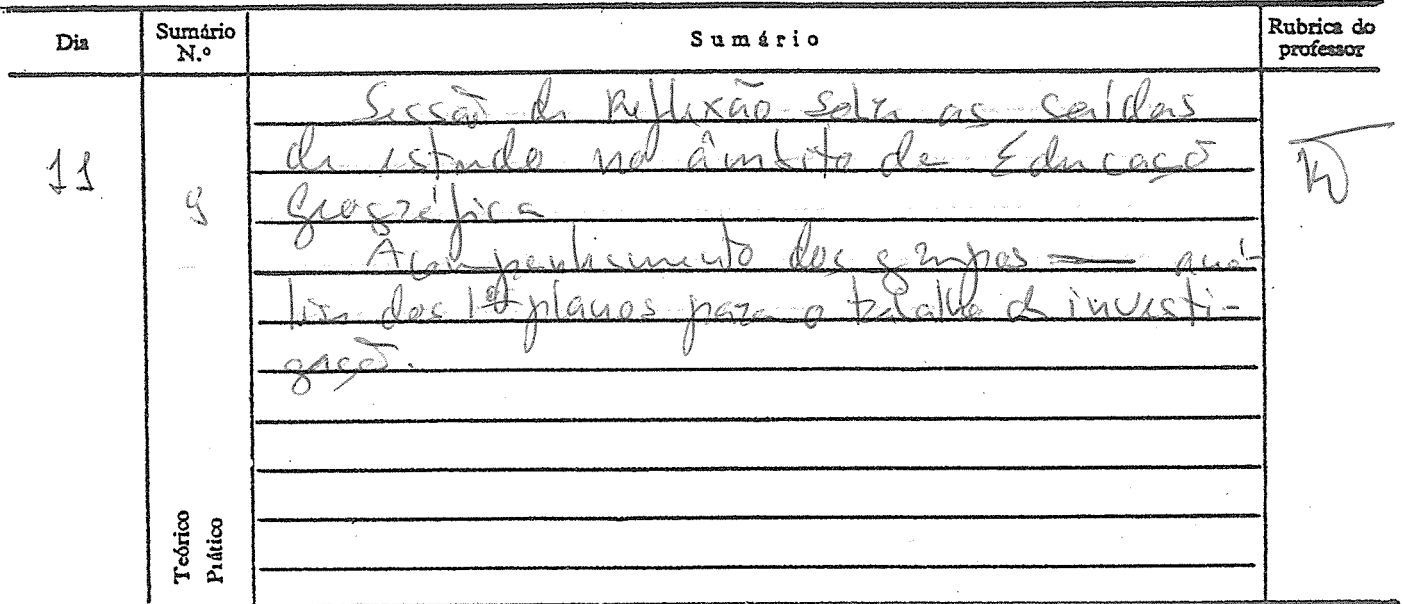 Dia Sumário N.º Sumário Rubrica do professor
Sessão de Reflexão sobre as saídas
11 de estudo no âmbito da Educação
9 Geográfica
Acompanhamento dos grupos — aná-
lise dos 1os planos para o trabalho de investi-
gação.
Teórico
Prático